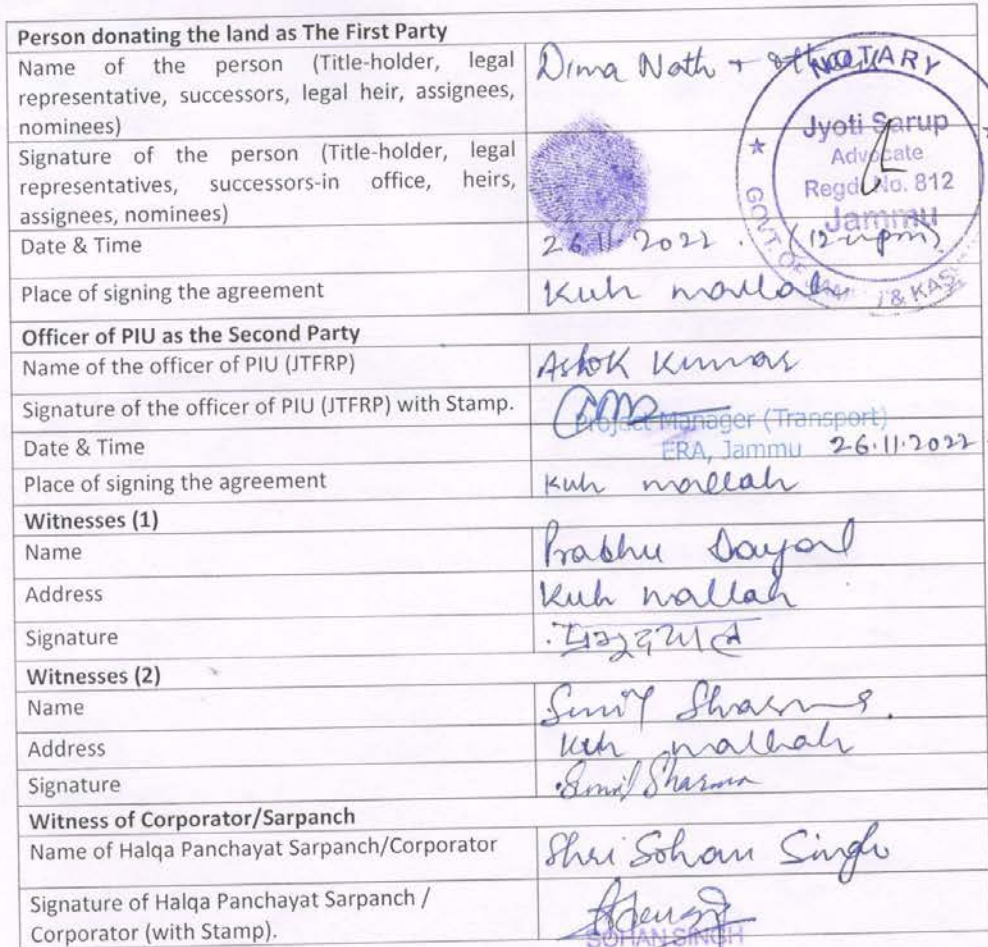 Person donating the land as The First Party
Name of the person (Title-holder, legal representative, successors, legal heir, assignees, nominees)
Dina Nath + others
NOTARY
Jyoti Sarup
Advocate
Regd. No. 812
Jammu
GOVT. OF JAMMU & KASH
Signature of the person (Title-holder, legal representatives, successors-in office, heirs, assignees, nominees)
Date & Time
26.11.2022. (12-pm)
Place of signing the agreement
Kuh mallah
Officer of PIU as the Second Party
Name of the officer of PIU (JTFRP)
Ashok Kumar
Signature of the officer of PIU (JTFRP) with Stamp.
Project Manager (Transport)
ERA, Jammu
Date & Time
26.11.2022
Place of signing the agreement
Kuh mallah
Witnesses (1)
Name
Prabhu Dayal
Address
Kuh mallah
Signature
प्रभुदयाल
Witnesses (2)
Name
Sunil Sharma.
Address
Kuh mallah
Signature
Sunil Sharma
Witness of Corporator/Sarpanch
Name of Halqa Panchayat Sarpanch/Corporator
Shri Sohan Singh
Signature of Halqa Panchayat Sarpanch /
Corporator (with Stamp).
SOHAN SINGH